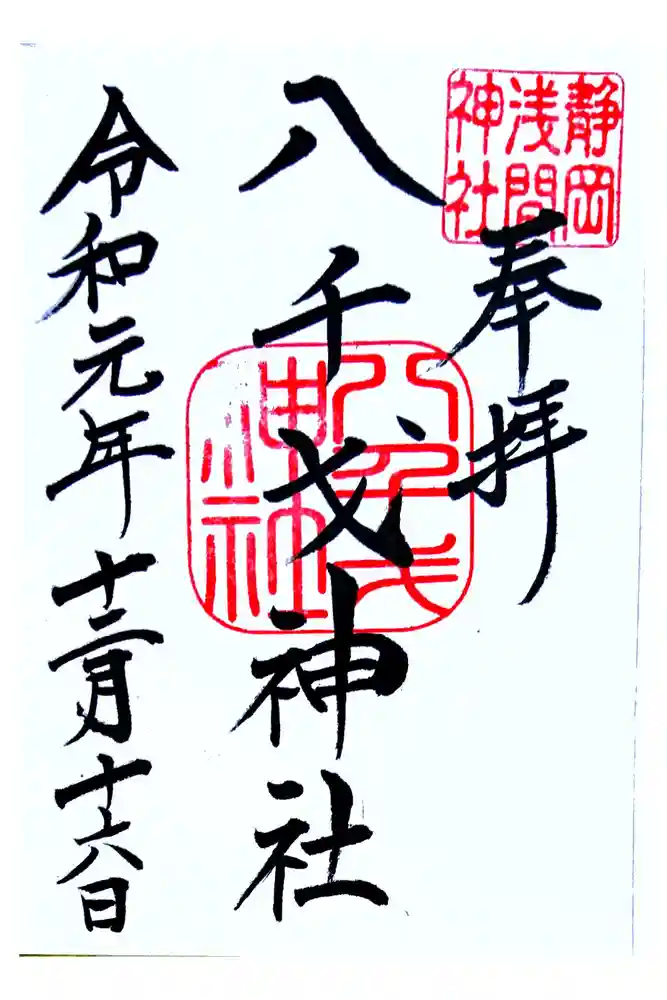 静岡
浅間
神社
奉拝
八千戈神社
八千戈
神社
令和元年十二月十六日